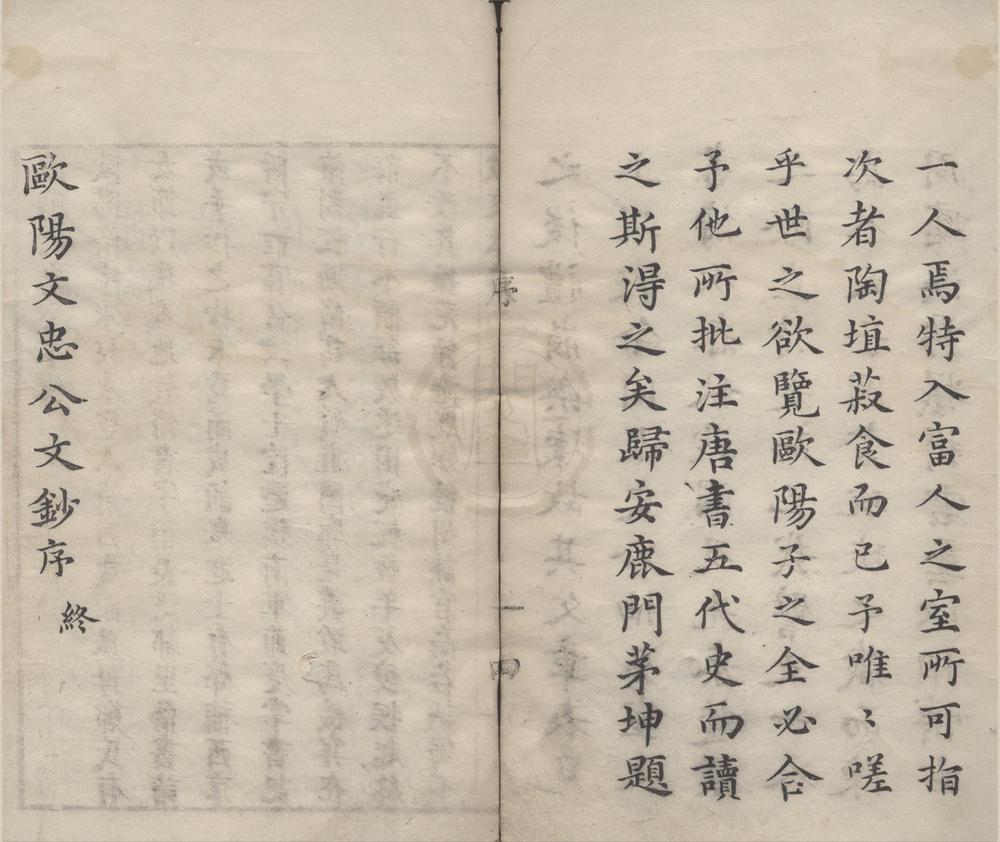 一人焉特入富人之室所可指
次者陶埴菽食而已予唯〻嗟
乎世之欲覽歐陽子之全必合
予他所批注唐書五代史而讀
之斯淂之矣歸安鹿門茅坤題
序
一
四
歐陽文忠公文鈔序 終